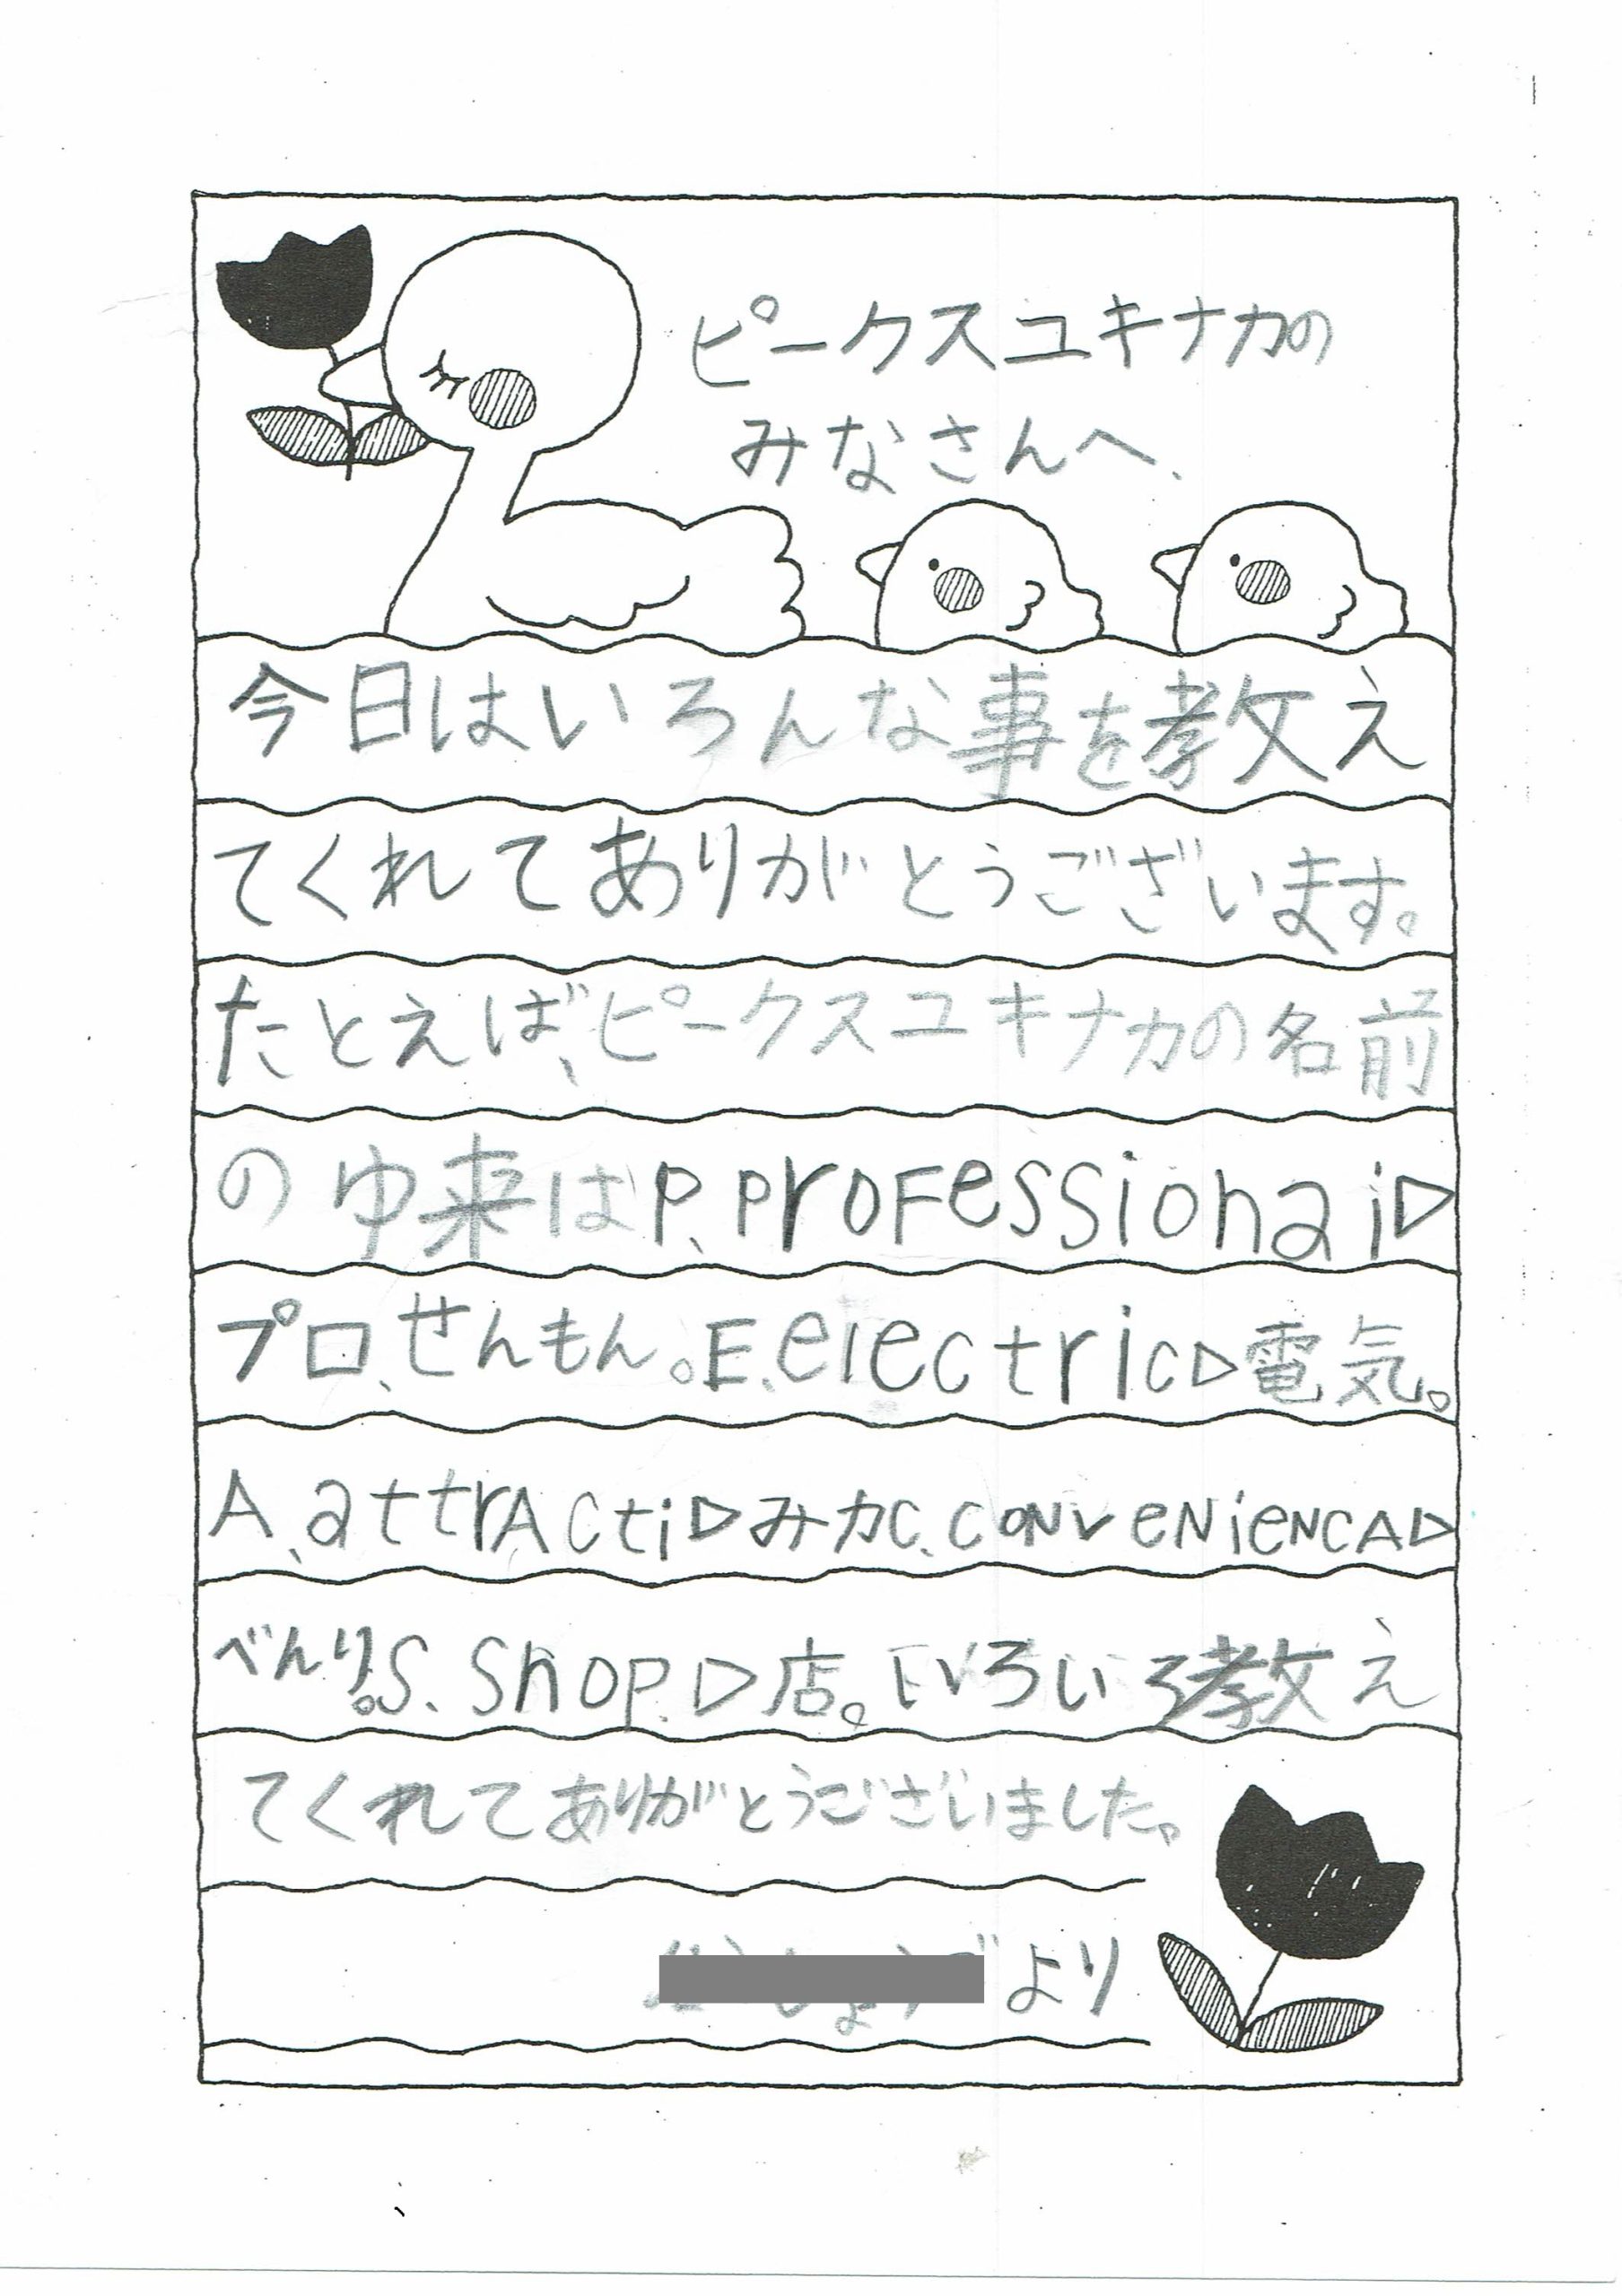 ピークスユキナカの
みなさんへ、
今日はいろんな事を教え
てくれてありがとうございます。
たとえば、ピークスユキナカの名前
のゆ来はP、Professionai▷
プロ、せんもん。E、electric▷電気。
A、attrActi▷みカC、CONVeNieNCA▷
べんり。S、Shop、▷店。いろいろ教え
てくれてありがとうございました。
より